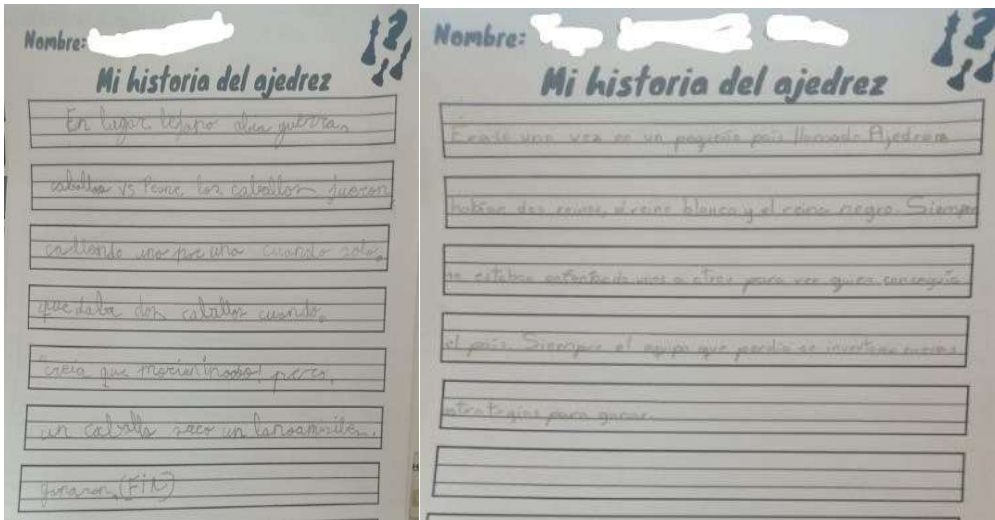 Nombre:
Mi historia del ajedrez
En lugar lejano abia guerra,
caballos vs Peone los caballos fueron
callendo uno por uno cuando solo,
quedaba dos caballos cuando,
creia que morian pero,
un caballo saco un lansamisiles.
ganaron, (FIN)
Nombre:
Mi historia del ajedrez
una vez en un pais llamado Ajedrez
habian dos reinos, el reino blanco y el reino negro. Siempre
se estaban unos a otros para ver quien conseguia
el pais. Siempre el equipo que perdia se inventaba nuevas
estrategias para ganar.